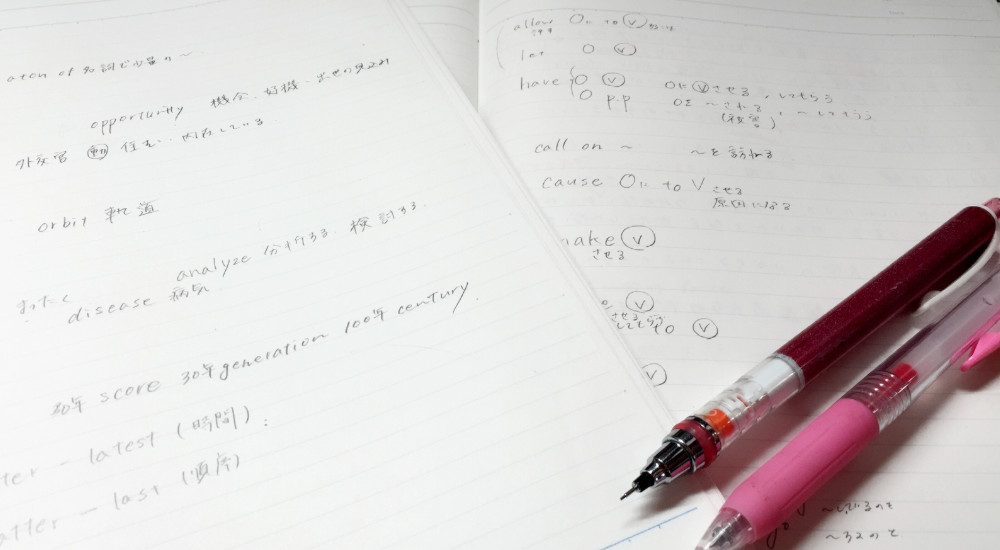 of 名詞で少量の〜
opportunity 機会、好機、出世の見込み
外交官 動 住む 内在している
orbit 軌道
analyze 分析する 検討する
disease 病気
score 30年 generation 100年 century
latest (時間)
last (順序)
allow O to V
let O V
have O V OにVさせる、してもらう
O p.p Oを〜される、〜してもらう
(被害)
call on 〜 〜を訪ねる
cause O to V させる
原因になる
make V
させる
V
to V
V
〜しているのを
〜するのを